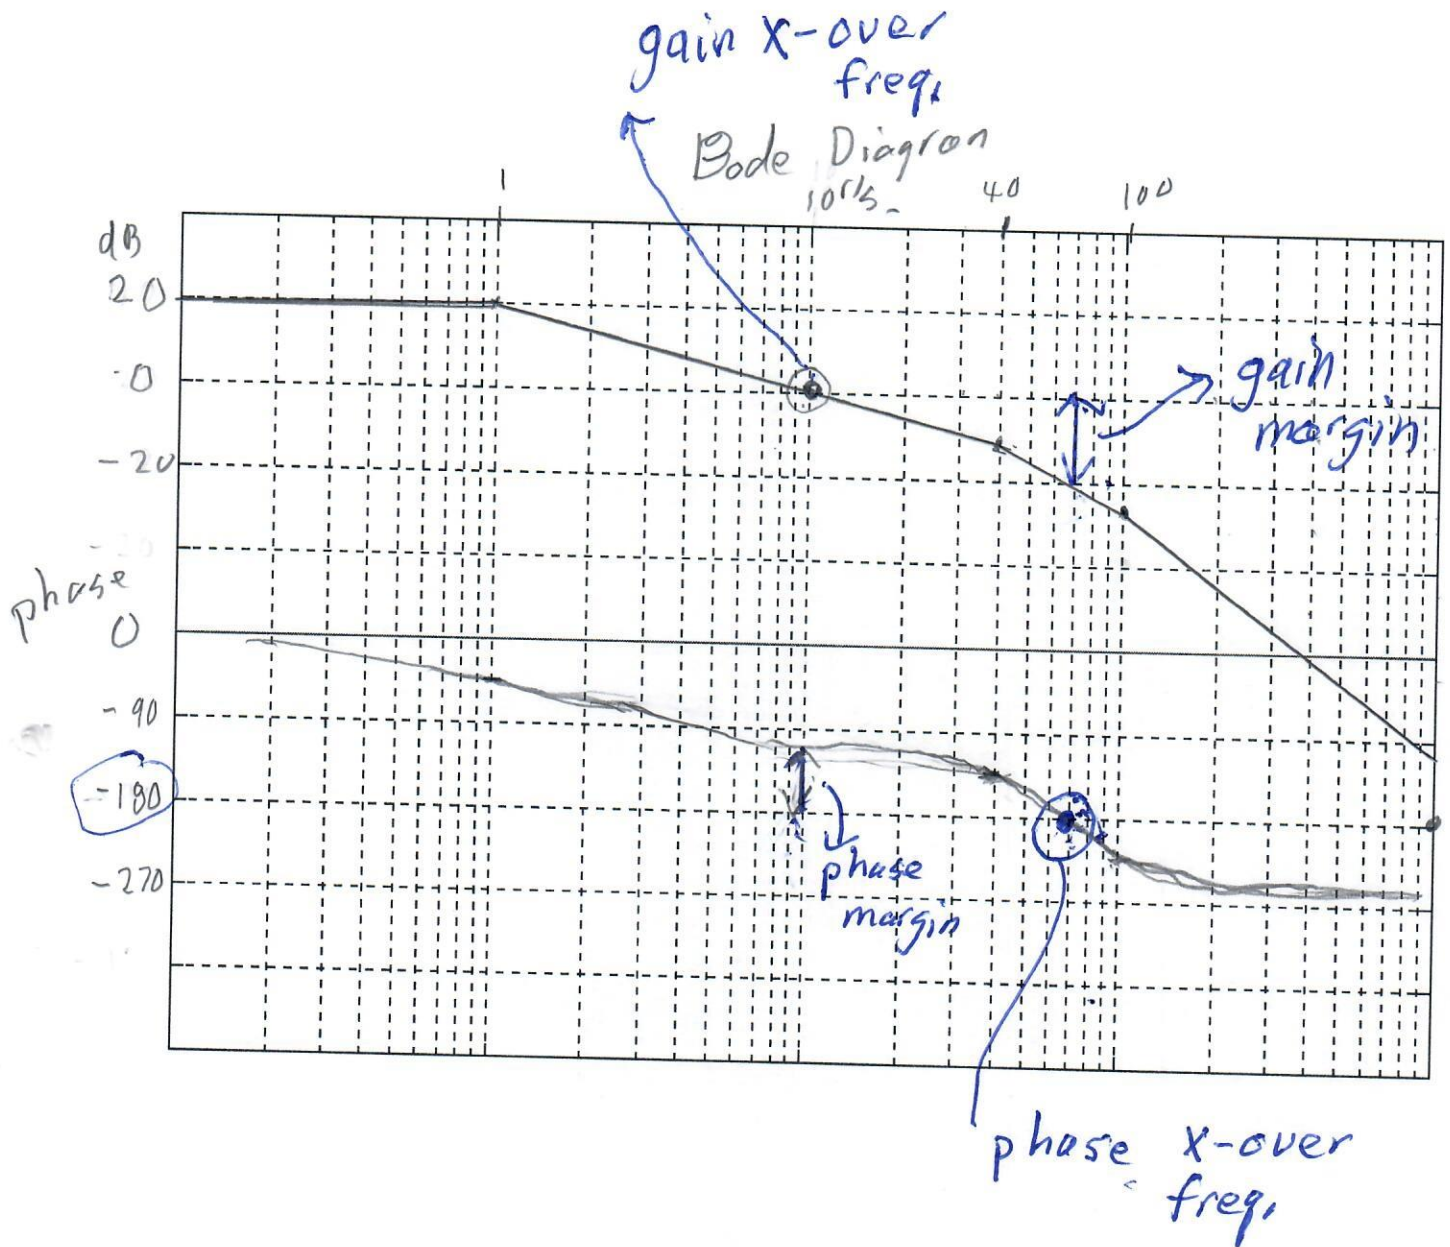 gain X-over
freq.
Bode Diagron
1
10 r/s.
40
100
dB
20
0
-20
phase
0
-90
-180
-270
gain
margin
phase
margin
phase X-over
freq.